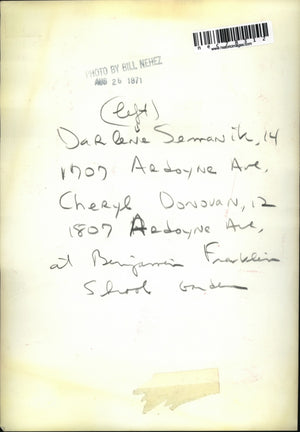 PHOTO BY BILL NEHEZ
AUG 26 1971
(left)
Darlene Semanik, 14
1707 Ardoyne Ave,
Cheryl Donovan, 12
1807 Ardoyne Ave,
at Benjamin Franklin
School Garden